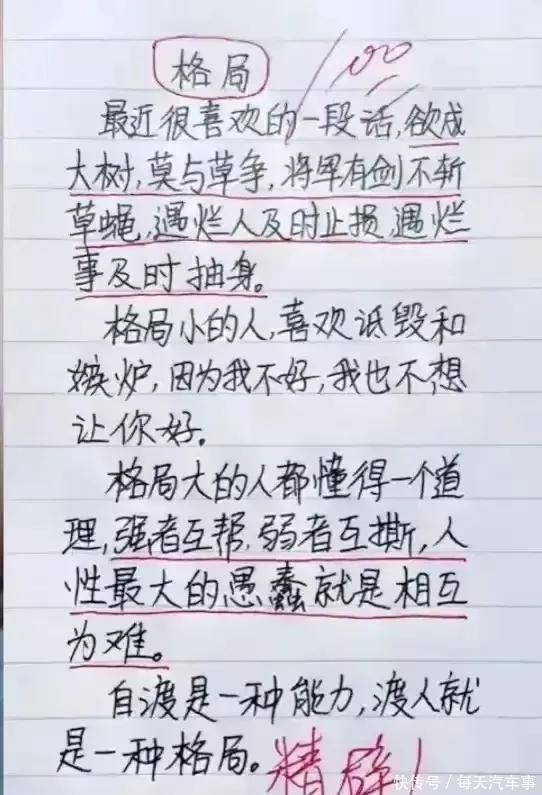 格局
100
最近很喜欢的一段话,欲成
大树,莫与草争,将军有剑不斩
草蝇,遇烂人及时止损,遇烂
事及时抽身。
格局小的人,喜欢诋毁和
嫉妒,因为我不好,我也不想
让你好。
格局大的人都懂得一个道
理,强者互帮,弱者互撕,人
性最大的愚蠢就是相互
为难。
自渡是一种能力,渡人就
是一种格局。
精辟!
快传号/每天汽车事